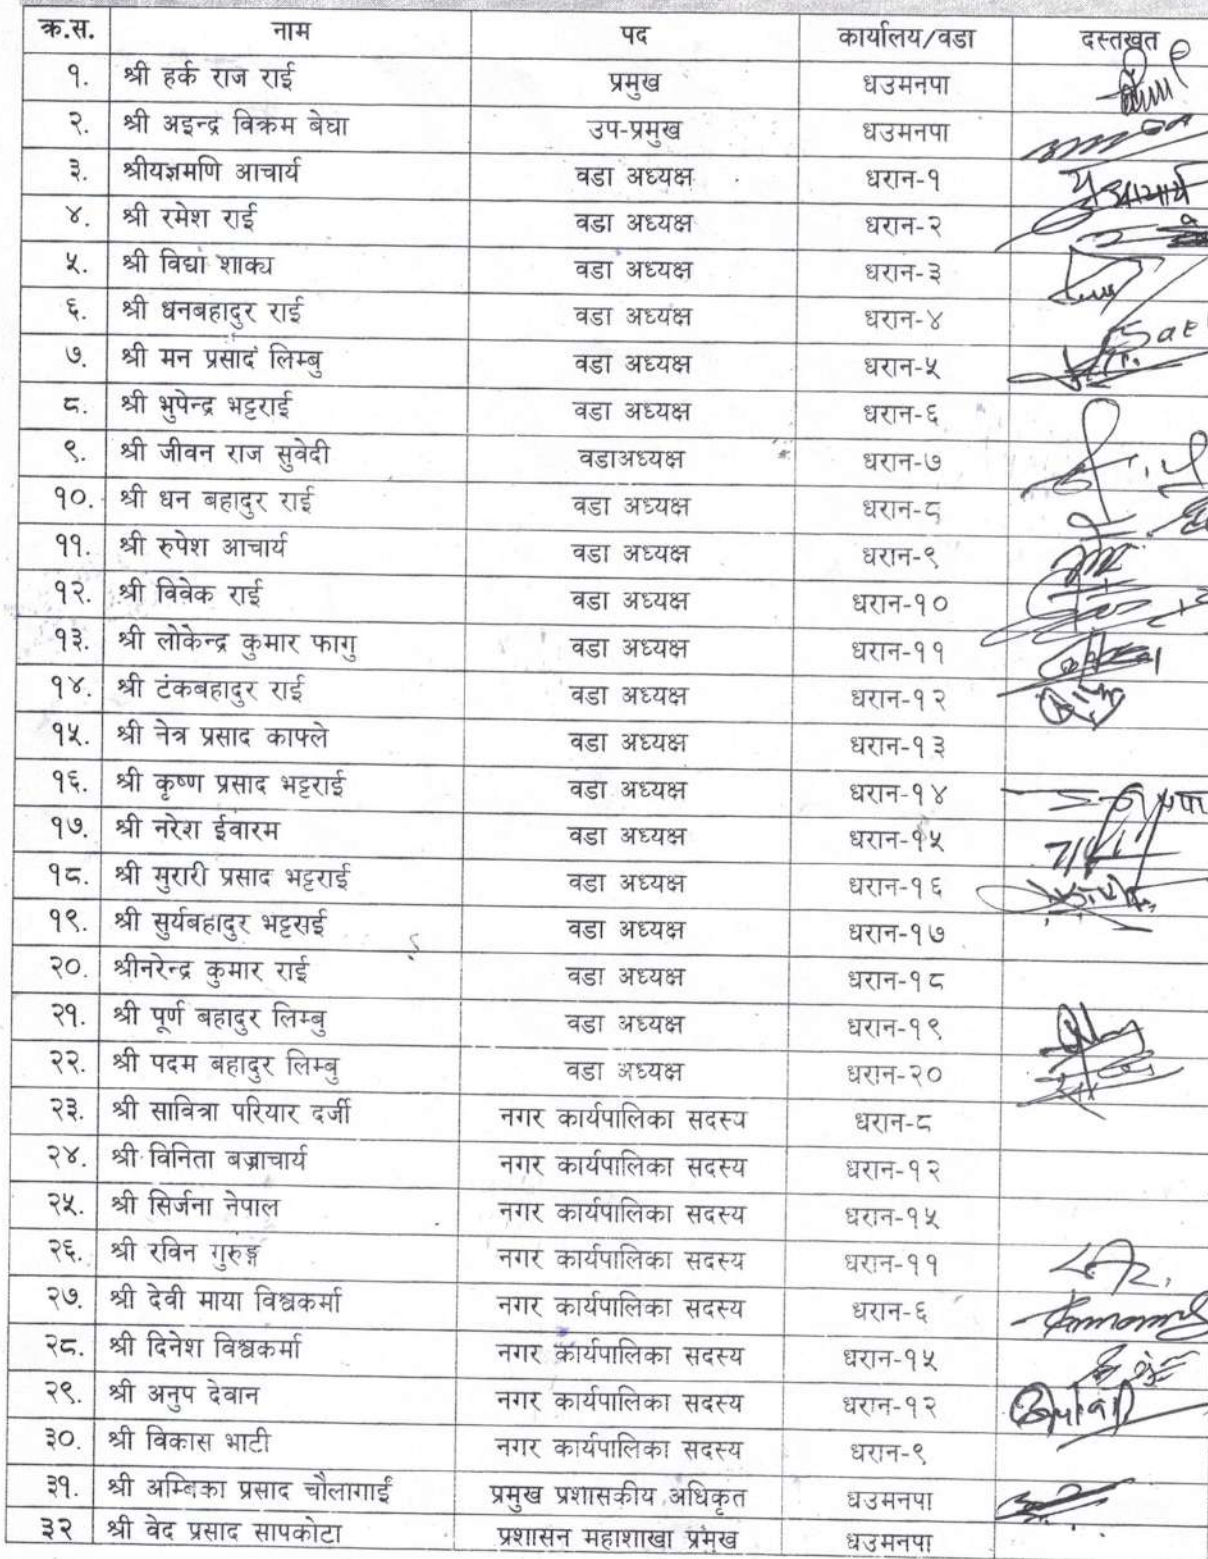 क्र.स. नाम पद कार्यालय/वडा दस्तखत
१. श्री हर्क राज राई प्रमुख धउमनपा
२. श्री अइन्द्र विक्रम बेघा उप-प्रमुख धउमनपा
३. श्रीयज्ञमणि आचार्य वडा अध्यक्ष धरान-१
४. श्री रमेश राई वडा अध्यक्ष धरान-२
५. श्री विद्या शाक्य वडा अध्यक्ष धरान-३
६. श्री धनबहादुर राई वडा अध्यक्ष धरान-४
७. श्री मन प्रसाद लिम्बु वडा अध्यक्ष धरान-५
८. श्री भुपेन्द्र भट्टराई वडा अध्यक्ष धरान-६
९. श्री जीवन राज सुवेदी वडाअध्यक्ष धरान-७
१०. श्री धन बहादुर राई वडा अध्यक्ष धरान-८
११. श्री रुपेश आचार्य वडा अध्यक्ष धरान-९
१२. श्री विवेक राई वडा अध्यक्ष धरान-१०
१३. श्री लोकेन्द्र कुमार फागु वडा अध्यक्ष धरान-११
१४. श्री टंकबहादुर राई वडा अध्यक्ष धरान-१२
१५. श्री नेत्र प्रसाद काफ्ले वडा अध्यक्ष धरान-१३
१६. श्री कृष्ण प्रसाद भट्टराई वडा अध्यक्ष धरान-१४
१७. श्री नरेश ईवारम वडा अध्यक्ष धरान-१५
१८. श्री मुरारी प्रसाद भट्टराई वडा अध्यक्ष धरान-१६
१९. श्री सुर्यबहादुर भट्टराई वडा अध्यक्ष धरान-१७
२०. श्रीनरेन्द्र कुमार राई वडा अध्यक्ष धरान-१८
२१. श्री पूर्ण बहादुर लिम्बु वडा अध्यक्ष धरान-१९
२२. श्री पदम बहादुर लिम्बु वडा अध्यक्ष धरान-२०
२३. श्री सावित्रा परियार दर्जी नगर कार्यपालिका सदस्य धरान-८
२४. श्री विनिता बज्राचार्य नगर कार्यपालिका सदस्य धरान-१२
२५. श्री सिर्जना नेपाल नगर कार्यपालिका सदस्य धरान-१५
२६. श्री रविन गुरुङ्ग नगर कार्यपालिका सदस्य धरान-११
२७. श्री देवी माया विश्वकर्मा नगर कार्यपालिका सदस्य धरान-६
२८. श्री दिनेश विश्वकर्मा नगर कार्यपालिका सदस्य धरान-१५
२९. श्री अनुप देवान नगर कार्यपालिका सदस्य धरान-१२
३०. श्री विकास भाटी नगर कार्यपालिका सदस्य धरान-९
३१. श्री अम्बिका प्रसाद चौलागाईं प्रमुख प्रशासकीय अधिकृत धउमनपा
३२ श्री वेद प्रसाद सापकोटा प्रशासन महाशाखा प्रमुख धउमनपा